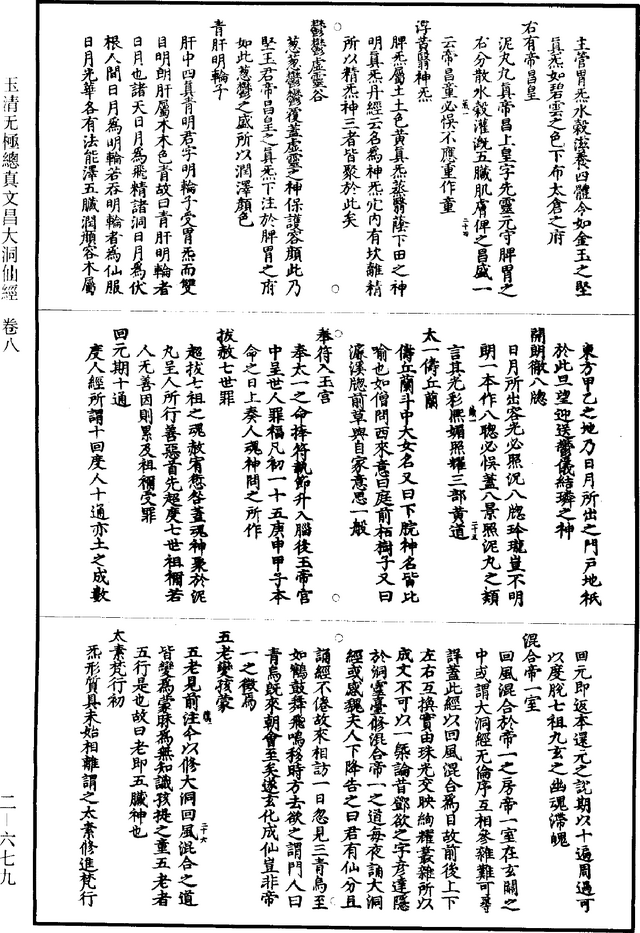 主管胃炁水穀滋養四體令如金玉之堅
真炁如碧雲之色下布太倉之府
右有帝昌皇
泥丸九真帝昌上皇字先靈元守脾胃之
右分散水穀灌溉五臟肌膚俾之昌盛一
云帝昌童必悞不應重作童
浮黄翳神炁
脾炁屬土土色黄真炁蒸翳蔭下田之神
明真炁丹經云名為神炁穴内有坎離精
所以精炁神三者皆聚於此矣
鬱鬱虛靈谷
葱葱鬱鬱覆蓋虛靈之神保護容顏此乃
堅玉君帝昌皇之真炁下注於脾胃之府
如此葱鬱之盛所以潤澤顏色
青肝明輪子
肝中四真青明君字明輪子受胃炁而雙
目明朗肝屬木木色青故曰青肝明輪者
日月也諸天日月為飛精諸洞日月為伏
根人間日月為明輪若吞明輪者為仙服
日月光華各有法能澤五臟潤顏容木屬
東方甲乙之地乃日月所出之門戶地祇
於此旦望迎送鬱儀結璘之神
開朗徹八牕
日月所出容光必照況八牕玲瓏豈不明
朗一本作八聰必悞蓋八景照泥丸之類
言其光彩熈媚照耀三部黄道
太一儔丘蘭
儔丘蘭斗中大女名又曰下脘神名皆比
喻也如僧問西來意曰庭前栢樹子又曰
濂溪牕前草與自家意思一般
奉符入玉宫
奉太一之命捧符執節升入腦後玉帝宫
中呈世人罪福凡初一十五庚申甲子本
命之日上奏人魂神問之所作
拔赦七世罪
超拔七祖之魂赦宥愆咎蓋魂神聚於泥
丸呈人所行善惡首先超度七世祖禰若
人无善因則累及祖禰受罪
回元期十通
度人經所謂十回度人十通亦土之成數
回元即返本還元之說期以十遍周過可
以度脫七祖九玄之幽魂滯魄
混合帝一室
回風混合於帝一之房帝一室在玄關之
中或謂大洞經无倫序互相參雜難可尋
詳蓋此經以回風混合為日故前後上下
左右互換實由珠光交映絢耀叢雜所以
成文不可以一槩論昔鄧欲之字彦達隱
於洞靈臺修混合帝一之道每夜誦大洞
經或感魏夫人下降告之曰君有仙分且
誦經不倦故來相訪一日忽見三青鳥至
如鶴鼓舞飛鳴移時方去欲之謂門人曰
青鳥既來朝會至矣遂玄化成仙豈非帝
一之徵焉
五老變孩蒙
五老見前注今以修大洞回風混合之道
皆變為蒙昧為無知識孩提之童五老者
五行是也故曰老即五臟神也
太素梵行初
炁形質具未始相離謂之太素修進梵行
玉清无極總真文昌大洞仙經 卷八
二—六七九